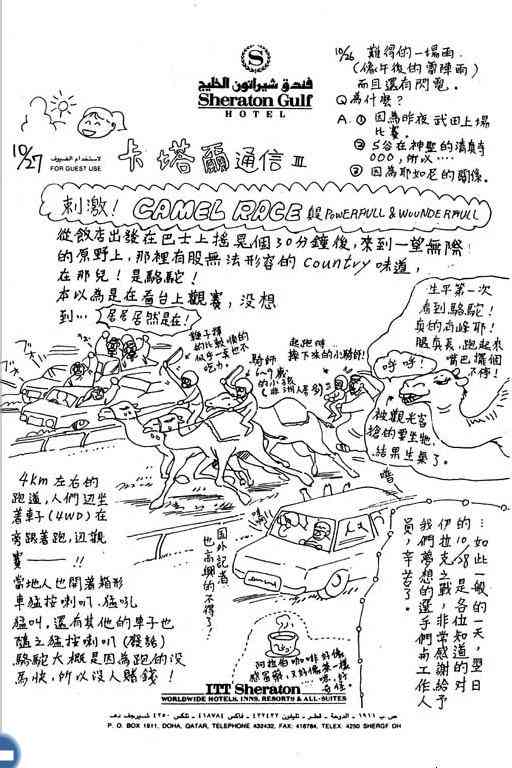 فندق شيراتون الخليج
Sheraton Gulf
HOTEL
10/26 難得的一場雨.
(像午後的雷陣雨)
而且還有閃電.
Q 為什麼?
A. ① 因為昨夜武田上場
比賽.
② S谷在神聖的清真寺
○○○,所以‥‥
③ 因為耶如尼的關係.
10/27
لاستخدام الضيوف
FOR GUEST USE
卡塔爾通信 III
刺激! CAMEL RACE POWERFULL & WOUNDERFULL
從飯店出發在巴士上搖晃個30分鐘後,來到一望無際
的原野上,那裡有股無法形容的 Country 味道,
在那兒!是駱駝!
本以為是在看台上觀賽,沒想
到… 居居居然是在!
生平第一次
看到駱駝!
真的有峰耶!
眼真長,跑起來
嘴巴擺個
不停!
鞭子揮
的比較順的
似乎一點也不
吃力.
騎師
6~9歲
的小孩
(非洲人居多)
起跑時
摔下來的小騎師!
呼呼!
被觀光客
搶的要坐牠,
結果生氣了.
嘈
4km 左右的
跑道,人們邊坐
著車子(4WD)在
旁跟著跑,邊觀
賽——!!
當地人也開著箱形
車猛按喇叭.猛吼
猛叫,還有其他的車子也
隨之猛按喇叭(發飆)
駱駝大概是因為跑的沒
為快,所以沒人賭錢!
國外記者
也高興的不得了!
…如此一般的一天,翌日
的10/28是各位知道的對
伊拉克之戰,非常感謝給予
我們夢想的選手們与工作人
員,辛苦了.
阿拉伯咖啡好像
ITT Sheraton
WORLDWIDE HOTELS, INNS, RESORTS & ALL-SUITES
ص ب ١٩١١ - الدوحة - قطر - تليفون ٤٣٢٤٣٢ - فاكس ٤١٨٧٨٤ - تلكس ٤٢٥٠ شيرجف دهـ
P. O. BOX 1911, DOHA, QATAR, TELEPHONE 432432, FAX: 418784, TELEX: 4250 SHERGF DH